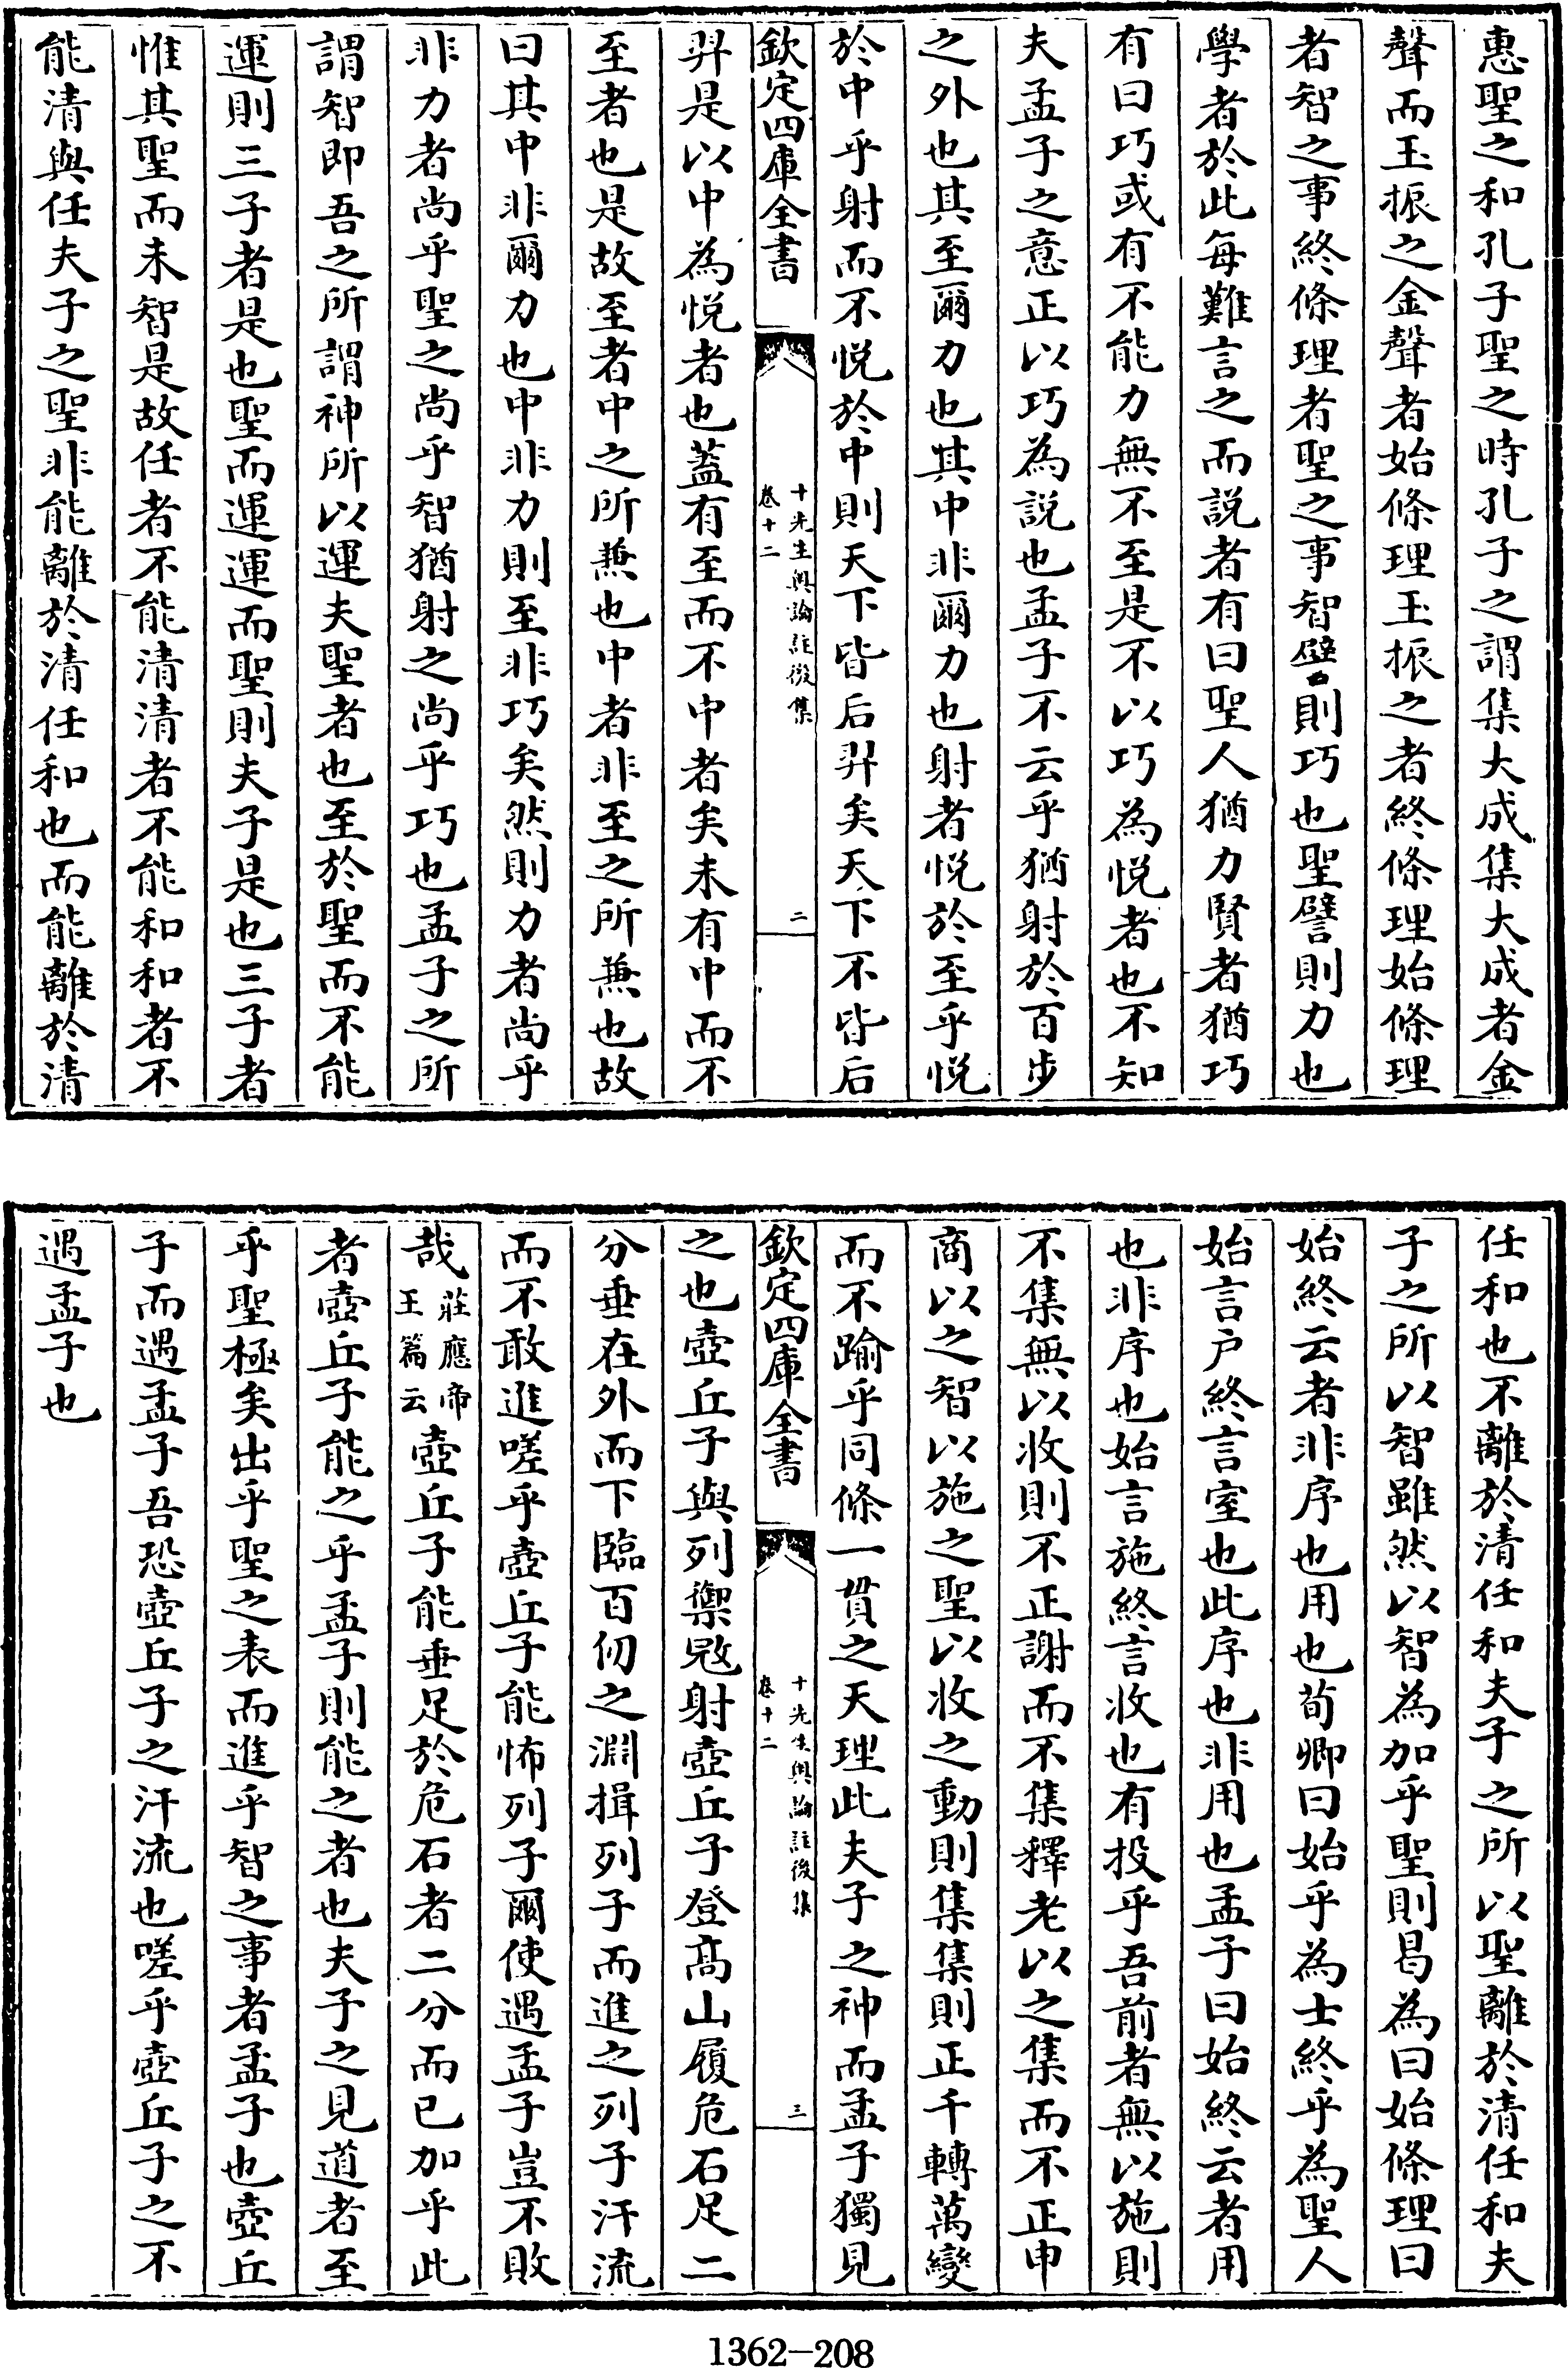 惠聖之和孔子聖之時孔子之謂集大成集大成者金
聲而玉振之金聲者始條理玉振之者終條理始條理
者智之事終條理者聖之事智譬則巧也聖譬則力也
學者於此每難言之而説者有曰聖人猶力賢者猶巧
有曰巧或有不能力無不至是不以巧為悦者也不知
夫孟子之意正以巧為説也孟子不云乎猶射於百步
之外也其至爾力也其中非爾力也射者悦於至乎悦
於中乎射而不悦於中則天下皆后羿矣天下不皆后
欽定四庫全書
十先生奥論註後集
卷十二
二
羿是以中為悦者也蓋有至而不中者矣未有中而不
至者也是故至者中之所兼也中者非至之所兼也故
曰其中非爾力也中非力則至非巧矣然則力者尚乎
非力者尚乎聖之尚乎智猶射之尚乎巧也孟子之所
謂智即吾之所謂神所以運夫聖者也至於聖而不能
運則三子者是也聖而運運而聖則夫子是也三子者
惟其聖而未智是故任者不能清清者不能和和者不
能清與任夫子之聖非能離於清任和也而能離於清
任和也不離於清任和夫子之所以聖離於清任和夫
子之所以智雖然以智為加乎聖則曷為曰始條理曰
始終云者非序也用也荀卿曰始乎為士終乎為聖人
始言户終言室也此序也非用也孟子曰始終云者用
也非序也始言施終言收也有投乎吾前者無以施則
不集無以收則不正謝而不集釋老以之集而不正申
商以之智以施之聖以收之動則集集則正千轉萬變
而不踰乎同條一貫之天理此夫子之神而孟子獨見
欽定四庫全書
十先生奥論註後集
卷十二
三
之也壺丘子與列禦冦射壺丘子登髙山履危石足二
分垂在外而下臨百仞之淵揖列子而進之列子汗流
而不敢進嗟乎壺丘子能怖列子爾使遇孟子豈不敗
哉莊應帝王篇云壺丘子能垂足於危石者二分而已加乎此
者壺丘子能之乎孟子則能之者也夫子之見道者至
乎聖極矣出乎聖之表而進乎智之事者孟子也壺丘
子而遇孟子吾恐壺丘子之汗流也嗟乎壺丘子之不
遇孟子也
1362-208